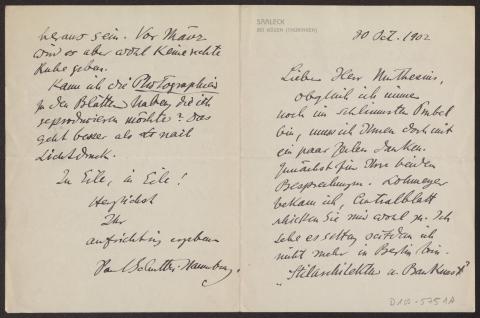 SAALECK
BEI KÖSEN (THÜRINGEN)
30 Oct. 1902
Lieber Herr Muthesius,
obgleich ich immer
noch im schlimmsten Trubel
bin, muss ich Ihnen doch mit
ein paar Zeilen danken.
Zunächst für Ihre beiden
Besprechungen. Lohmeyer
bekam ich, Centralblatt
schicken Sie mir wohl zu. Ich
sehe es selten seitdem ich
nicht mehr in Berlin bin.
"Stilarchitektur u. Baukunst"
D 102-5751A
heraus sein. Vor März
wird es aber wohl keine rechte
Ruhe geben.
Kann ich die Photographien
zu den Blättern haben die ich
reproduzieren möchte? Das
geht besser als nach
Lichtdruck.
In Eile, in Eile!
Herzlichst
Ihr
aufrichtig ergebener
Paul Schultze-Naumburg.